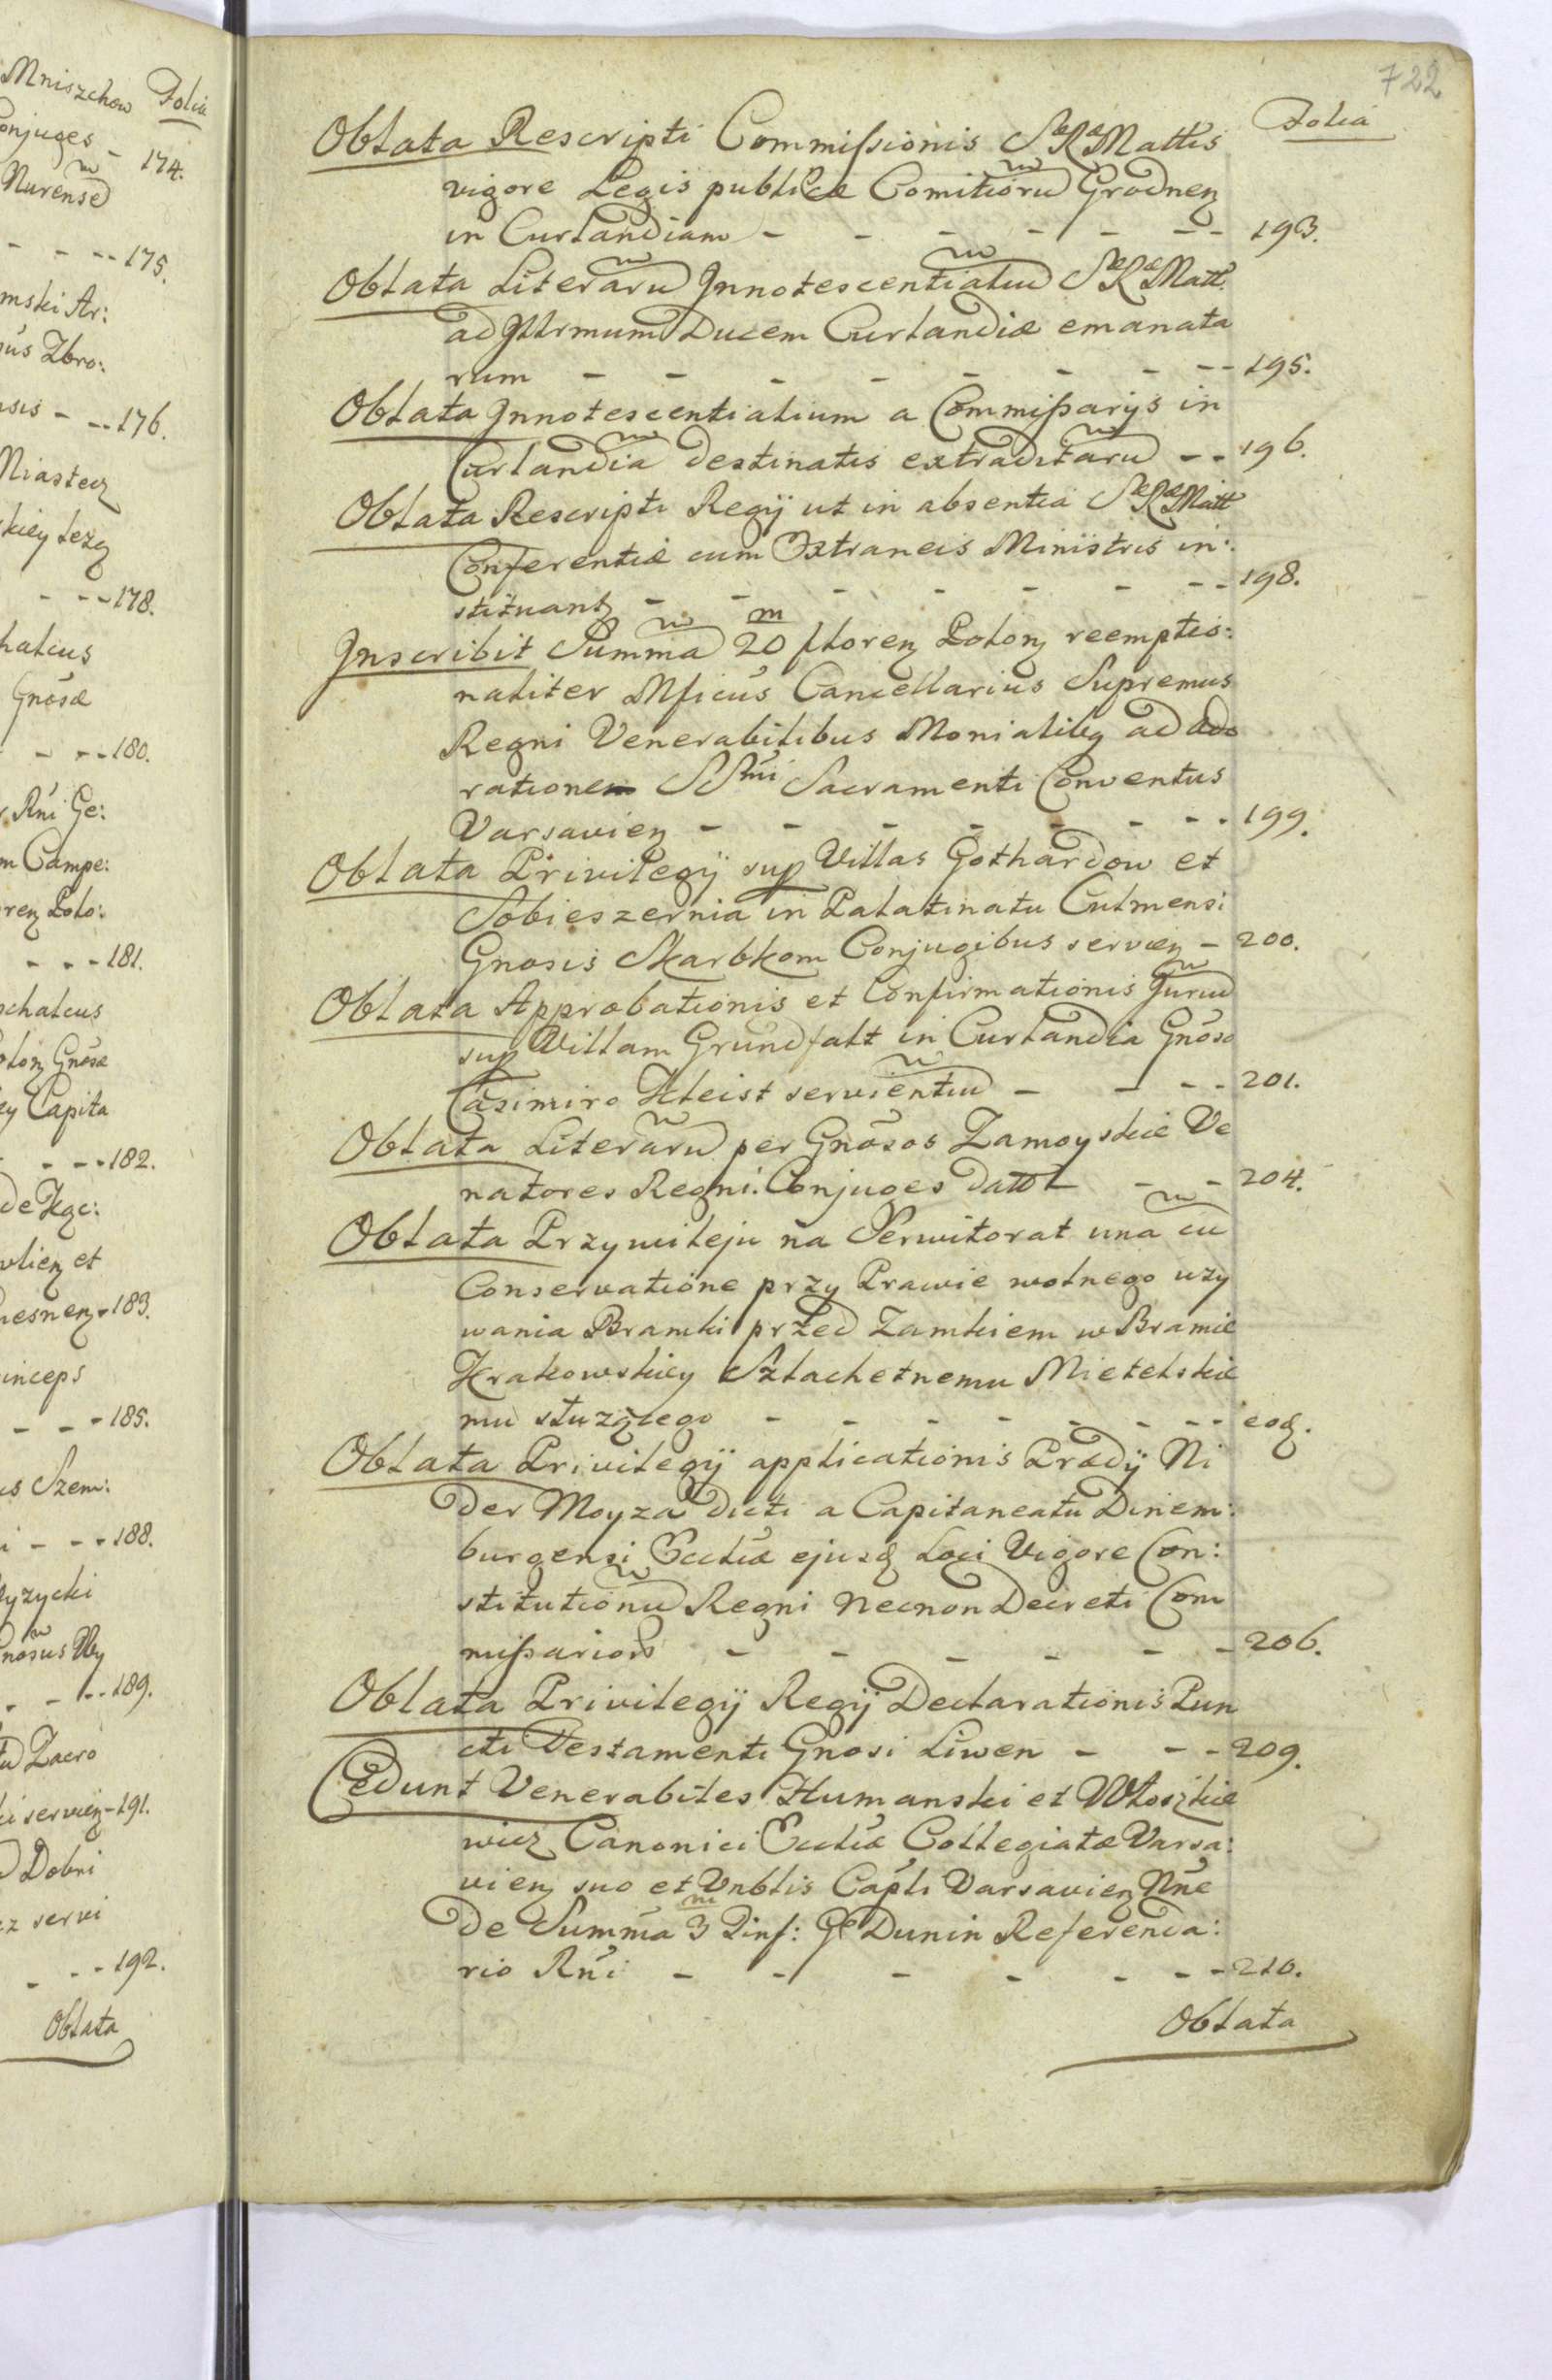 Mniszchow Folia
Conjuges - 174.
Nurense
- - -- 175.
mski Ar:
sus Zbro:
nsis - -- 176.
Miastecz
skiey leżą
- - -- 178.
halcus
Gnosæ
- - -- 180.
Rni Ge:
m Campe:
ren Polo:
- - - 181.
schalcus
olon Gnosæ
ey Capita
- - -- 182.
de Kgc:
vlien et
nesnen - 183.
inceps
- - - 185.
us Szem:
i - - - 188.
yzycki
Gnosus Wy
- - -- 189.
Lacro
ki servien - 191.
Dobri
ez servi
- - - 192.
Oblata
722
Folia
Oblata Rescripti Commissionis S R Mattis
vigore Legis publicæ Comitioru Grodnen
in Curlandiam - - - - - -- 193.
Oblata Literaru Innotescentialiu S R Matt.
ad Illrmum Ducem Curlandiæ emanata
rum - - - - - - - -- 195.
Oblata Innotescentialium a Commissarijs in
Curlandia destinatis extraditaru -- 196.
Oblata Rescripti Regij ut in absentia S R Matt
Conferentiæ cum Extraneis Ministris in:
stituant - - - - - - -- 198.
Inscribit Summa 20 m floren Polon reemptio:
naliter Mficus Cancellarius Supremus
Regni Venerabilibus Monialibq ad Ado
rationem SSmi Sacramenti Conventus
Varsavien - - - - - - -- 199.
Oblata Privilegij sup Villas Gothardow et
Sobieszernia in Palatinatu Culmensi
Gnosis Skarbkom Conjugibus servien - 200.
Oblata Approbationis et Confirmationis Juriu
sup Villam Grundfalt in Curlandia Gnoso
Casimiro Kleist servientiu - - -- 201.
Oblata Literaru per Gnosos Zamoyskie Ve
natores Regni Conjuges dat - - 204.
Oblata Przywileju na Serwitorat una cu
Conservatione przy Prawie wolnego uzy
wania Bramki przed Zamkiem w Bramie
Krakowskiey Szlachetnemu Mietelskie
mu słuzącego - - - - - - -- eod.
Oblata Privilegij applicationis Prædij Ni
der Moyza dicti a Capitaneatu Dinem:
burgensi Ecclæ ejusd Loci Vigore Con:
stitutionu Regni necnon Decreti Com
missarior - - - - - - 206.
Oblata Privilegij Regij Declarationis Pun
cti Testamenti Gnosi Liwen - - - 209.
Cedunt Venerabiles Humanski et Włoszkie
wicz Canonici Ecclæ Collegiatæ Varsa:
vien suo et Vnblis Capli Varsavien Nne
de Summa 3 m Pinf: G Dunin Referenda:
rio Rni - - - - - - - 210.
Oblata